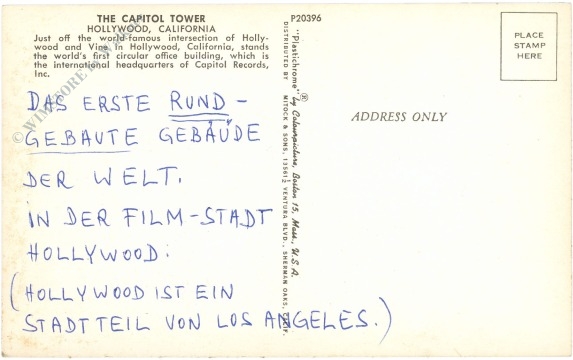 THE CAPITOL TOWER
HOLLYWOOD, CALIFORNIA
Just off the world-famous intersection of Holly-
wood and Vine in Hollywood, California, stands
the world's first circular office building, which is
the international headquarters of Capitol Records,
Inc.
DAS ERSTE RUND-
GEBAUTE GEBÄUDE
DER WELT.
IN DER FILM-STADT
HOLLYWOOD.
(HOLLYWOOD IST EIN
STADTTEIL VON LOS ANGELES.)
P20396
"Plastichrome" ® by Colourpicture, Boston 15, Mass., U.S.A.
DISTRIBUTED BY MITOCK & SONS, 13561½ VENTURA BLVD., SHERMAN OAKS, CALIF.
PLACE
STAMP
HERE
ADDRESS ONLY